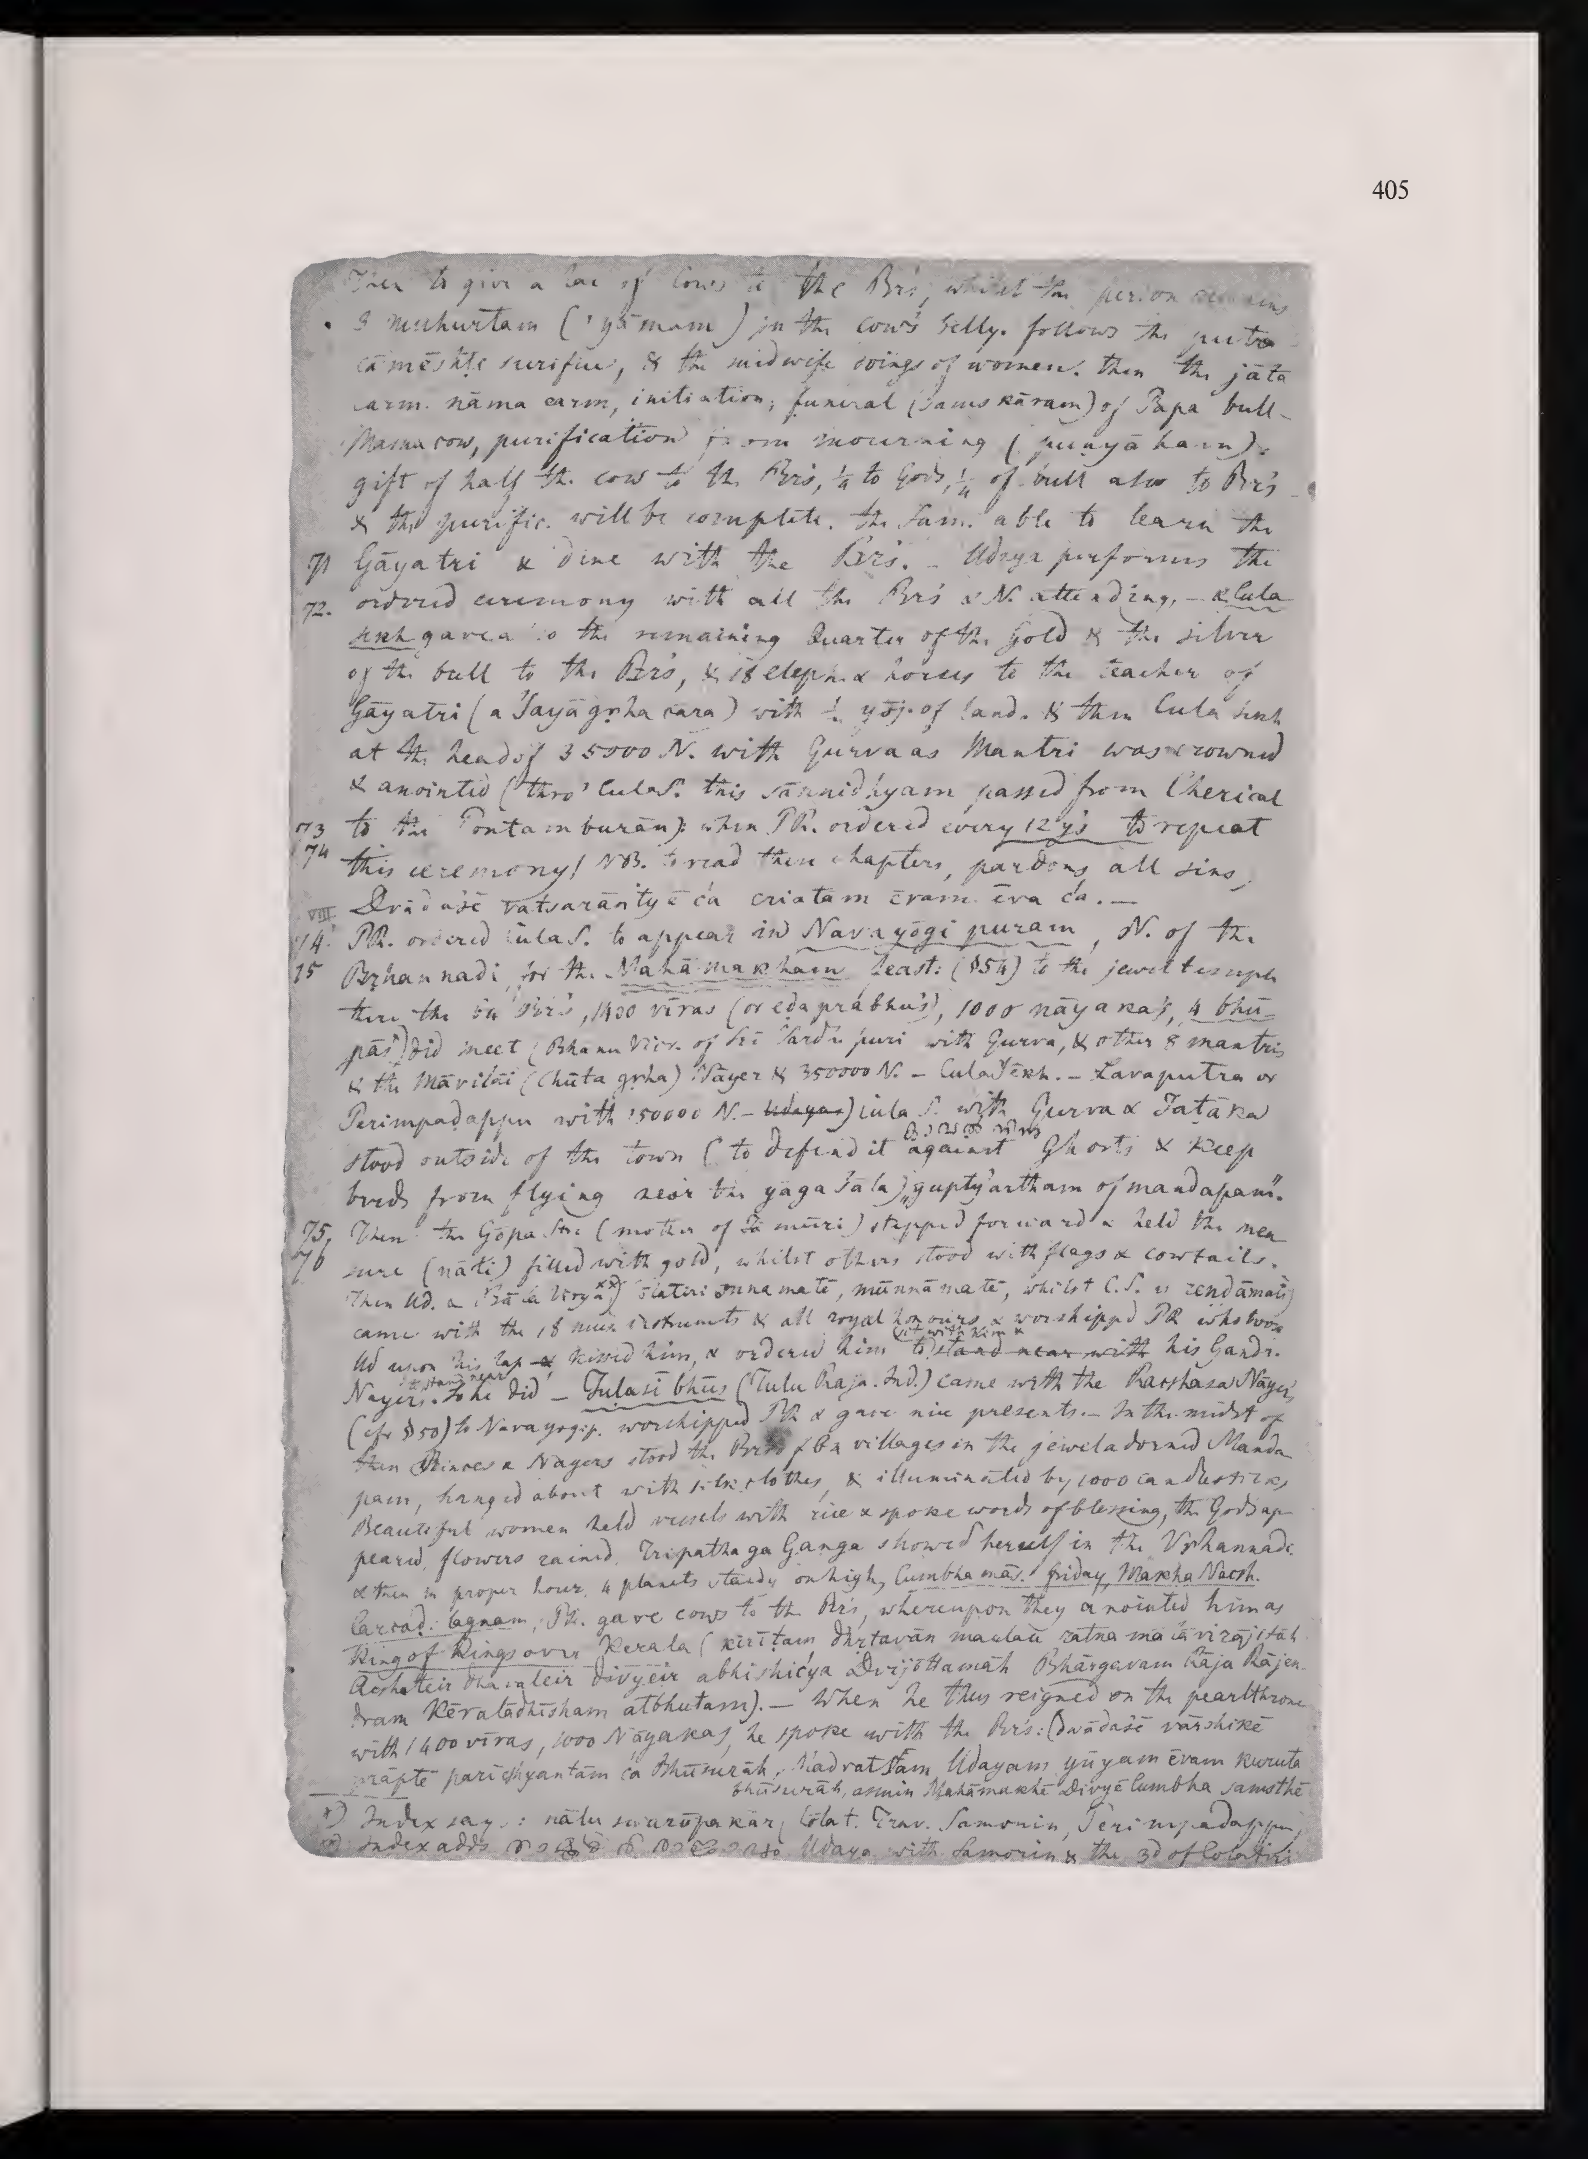 405
Then to give a lac of Cows to the Brs, whilst the person remains
3 muhurtam ( yāmam ) in the cow's belly. follows the putra
cāmēshte sacrifice, & the midwife doings of women. then the jāta
carm. nāma carm, initiation, funeral (samskāram) of Papa bull
Mama cow, purification from mourning ( punyāham).
gift of half the cow to the Brs, ¼ to Gods, ¼ of bull also to Brs
& the purific. will be complete. the Sam. able to learn the
71 Gāyatri & dine with the Brs. - Udaya performs the
72. ordered ceremony with all the Brs & N. attending, - & Cula
sekh gave to the remaining Quarter of the Gold & the silver
of the bull to the Brs, & 18 eleph. & horses to the teacher of
Gāyatri (a Jayāgrha cāra) with yōj. of land. & then Cula sekh
at the head of 35000 N. with Gurva as Mantri was crowned
& anointed (thro' CulaS. this sānnidhyam passed from Cherical
73 to the Pontamburān): when PR. ordered every 12 y's to repeat
74 this ceremony! NB. to read these chapters, pardons all sins,
VIII Dvādaśē vatsarāntyē ća criatam ēvam ēva ća. —
14. PR. ordered CulaS. to appear in Navayōgi puram, N. of the
15 Brhannadi, for the Mahāmakham feast: (§54) to the jewel temple
there the 64 Brs, 1400 vīras (or eḍaprabhu's), 1000 nāyaka's, 4 bhū-
pās) did meet (Bhanu Vicr. of Sri Vardh puri with Gurva, & other 8 mantris
& the Māvilāi (Chūta grha) Nāyer & 350000 N. - CulaSēkh. - Lavaputra or
Perimpadappu with 50000 N. - Udaya) Cula S. with Gurva & Tatāka
stood outside of the town ( to defend it against Ghosts & keep
birds from flying near the yāga śāla) „guptyartham of mandapam".
75, Then the Gōpa Stri (mother of Tāmūri) stepped forward & held the mea
76 sure (nāli) filled with gold, whilst others stood with flags & cowtails.
Then Ud. & Bāla Virya) ēlateri onnamatē, mūnnāmatē, whilst C.S. is rendāmatē)
came with the 18 music instruments & all royal honours & worshipped PR who took
sit with him &
Ud upon his lap & kissed him, & ordered him to stand near with his Gandr.
to stand near
Nayers. So he did - Tulasi bhūs (Tulu Raja. Ind.) came with the Racshasa Nāyers
(cfr §50) to Navayogip. worshipped PR & gave nice presents. - In the midst of
then Princes & Nayers stood the Brs of 64 villages in the jeweladorned Manda
pam, hanged about with silk clothes, & illuminated by 1000 candlesticks
Beautiful women held vessels with rice & spoke words of blessing, the Gods ap
peared, flowers rained. Tripathaga Ganga showed herself in the Vrhannadi.
& then in proper hour, 4 planets steady on high, Cumbha mās. friday, Makha Nacsh.
Carcad. lagnam, PR. gave cows to the Brs, whereupon they anointed him as
King of Kings over Kerala (kirītam dhrtavān maulau ratna mālāvirājitah
Acshateir dhavaleir divyeir abhishićya Dvijōttamāh Bhārgavam Rāja Rājen-
dram Kēralādhīsham atbhutam). — When he thus reigned on the pearlthrone
with 1400 vīras, 1000 Nāyakas, he spoke with the Brs: (dvādaśē vārshikē
prāptē ća bhūsurāh, Udayam yūyam ēvam kuruta
bhūsurāh, asmin Mahāmakhē Divyē Cumbha samsthē
*) Index says: nālu swarūpakār, Colat. Trav. Samorin, Perimpadappu,
**) Index adds Udaya with Samorin & the 3d of Colatiri